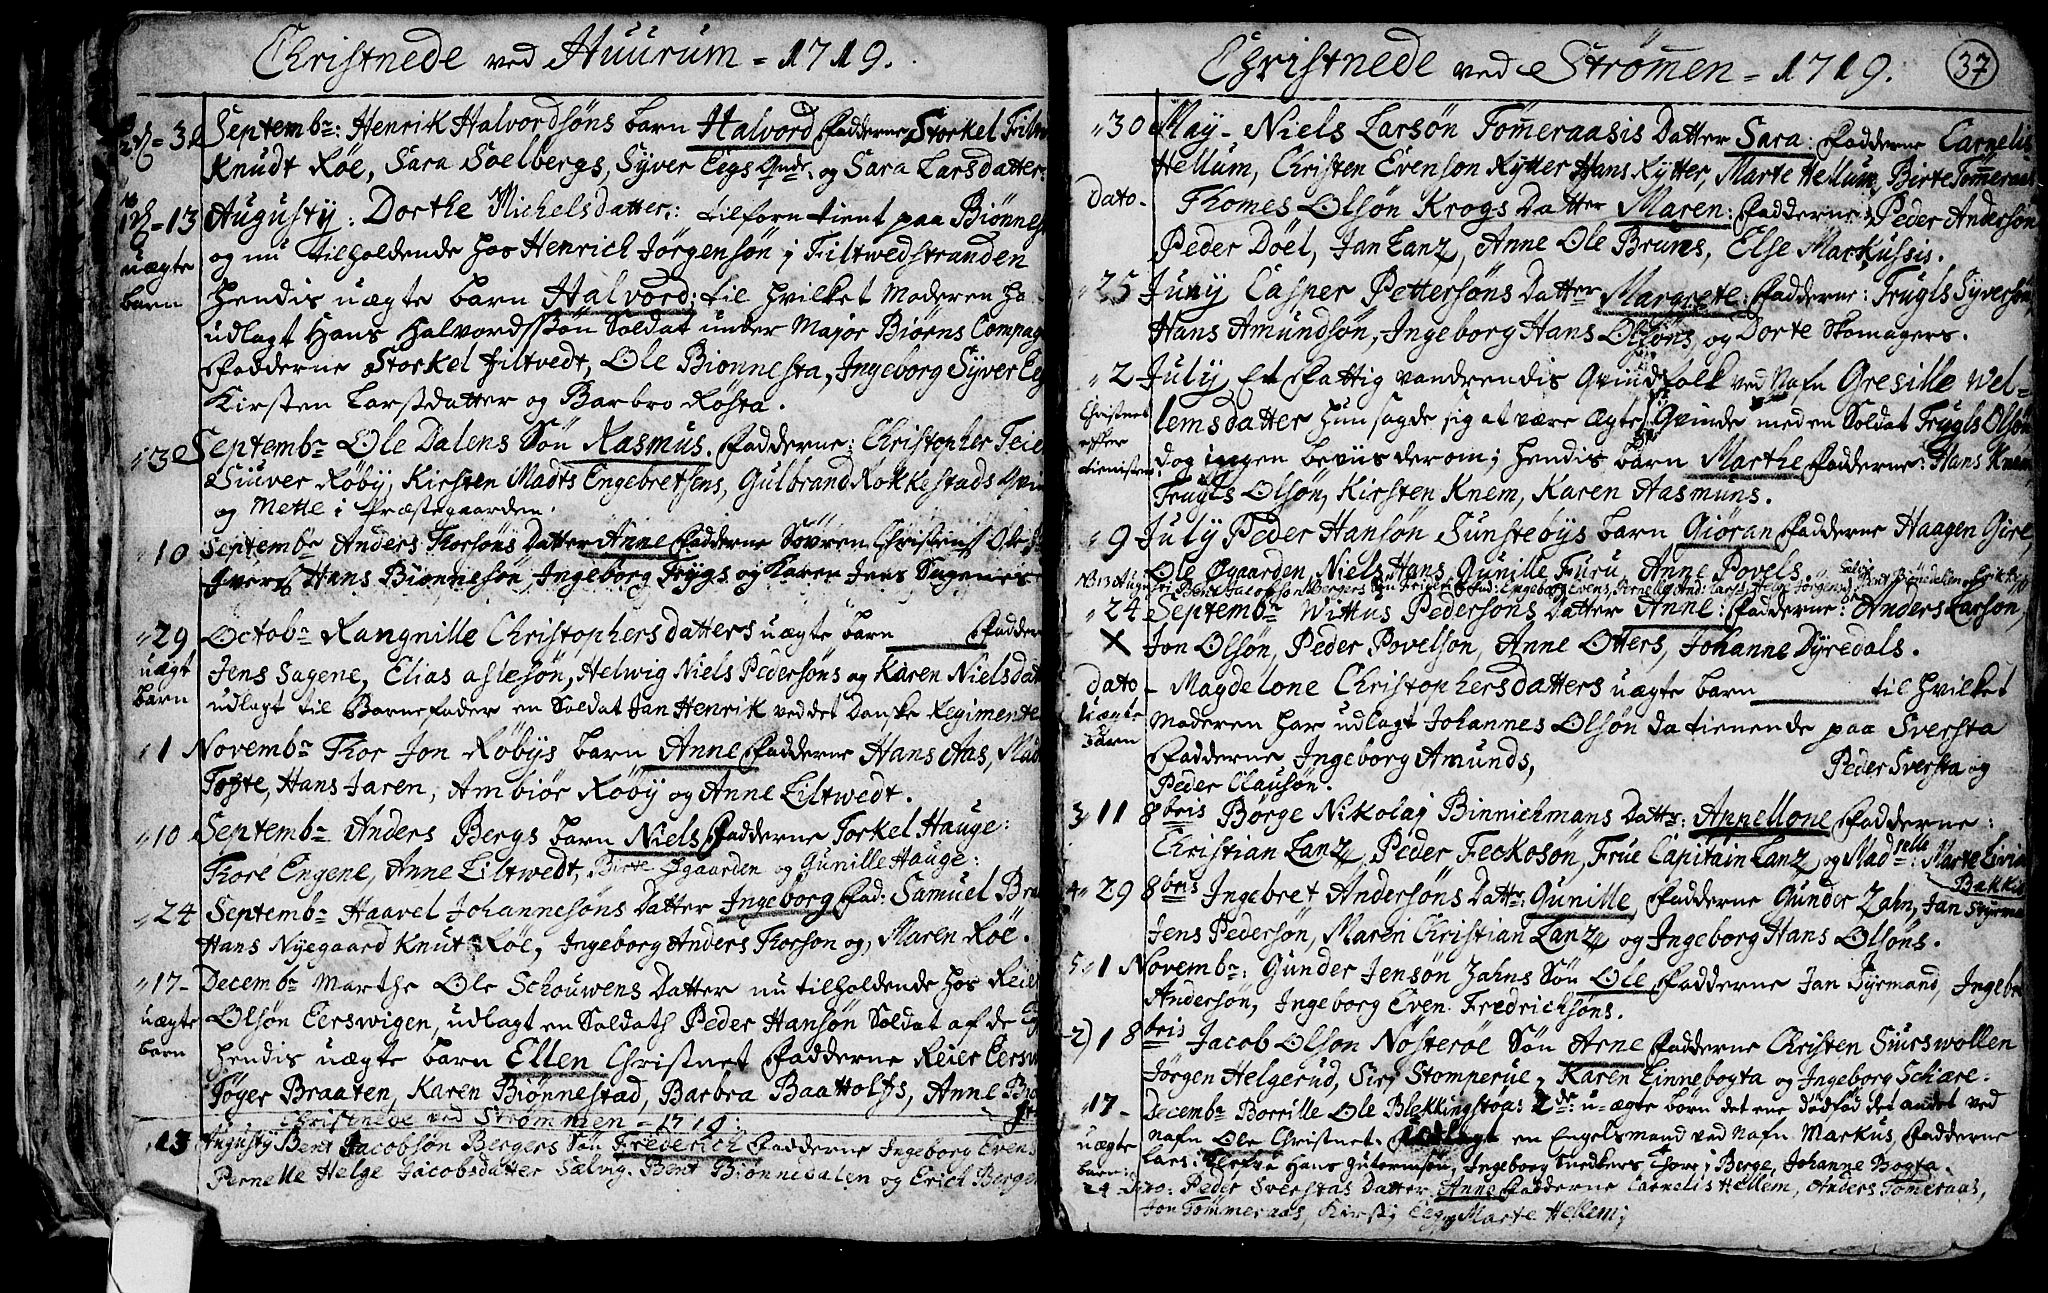 Christnede ved Huurum = 1719.
3 Septembr: Henrik Halvordsöns barn Halvord Fadderne Storkel
Knudt Röe, Sara Soelbergs, Syver Eegs Qvde. og Sara Larsdatter.
13 Augustij: Dorthe Michelsdatter: tilforn tient paa Biönne
uægte og nu tilholdende hos Henrich Jörgensön i Filtwedstranden
barn hendis uægte barn Halvord; til hvilket Moderen ha
udlagt Hans Halvordssön Soldat under Major Biörns Compag
Fadderne Storkel Filtvedt, Ole Biönnesta, Ingeborg Syver Eeg
Kirsten Larsdatter og Barbro Rösta.
3 Septembr Ole Dalens Sön Rasmus. Fadderne: Christopher Teie
Siuver Röby, Kirsten Madts Engebretsens, Gulbrand Rokkestads Qvin
og Mette i Præstegaarden.
10 Septembr Anders Thorsöns Datter Anne Fadderne Sövren Christens Ole
Ivers Hans Biönnesön, Ingeborg Trygs og Karen Jens Sagenes
29 Octobr Rangnille Christophersdatters uægte barn Fadder
uægt Jens Sagene, Elias Aslesön, Helwig Niels Pedersöns og Karen Nielsdat
barn udlagt til Barnefader en Soldat Jan Henrik ved det Danske Regimente
1 Novembr Thor Jon Röbys barn Anne Fadderne Hans Aas, Mad
Tofte, Hans Jaren, Ambiör Röby og Anne Liltwedt.
10 Septembr Anders Bergs barn Niels Fadderne Torkel Hauge:
Thore Engene, Anne Liltwedt, Birte Ögaarden og Gunille Hauge:
24 Septembr Haavel Johannesöns Datter Ingeborg Fad: Samuel Bra
Hans Nyegaard Knut Röe, Ingeborg Anders Thorson og, Maren Röe.
17 Decembr Marthe Ole Schouwens Datter nu tilholdende hos Reier
uægte Olsön Eerswigen, udlagt en Soldath Peder Hansön Soldat af de
barn hendis uægte barn Ellen Christnet Fadderne Reier Eersw
Töger Braaten, Karen Biönnestad, Barbra Baattolfs, Anne
Christnede ved Strömmen = 1719:
13 Augustij Bent Jacobsön Bergers Sön Frederich Fadderne Ingeborg Evens
Pernelle Helge Jacobsdatter Sælvig. Bent Biönnedalen og Erich Bergen
Christnede ved Strömen = 1719. 37
30 May - Niels Larsön Tömeraasis Datter Sara: Fadderne Carnelis
Hellum, Christen Evenson Rytter Hans Rytter, Marte Hellum, Birte Tömeraas
dato - Thomes Olsön Krogs Datter Maren: Fadderne: Peder Andersön
Peder Döel, Jan Lanz, Anne Ole Bruns, Else Markussis.
25 Juny Casper Pettersöns Datter Margrete: Fadderne: Trugls Syversön
Hans Amundsön, Ingeborg Hans Olsöns, og Dorte Skomagers.
2 July Et Fattig vandrendis Qvindfolk ved Nafn Gresille Wel=
Christnet lemsdatter hun sagde sig at være ægte Qvinde med en Soldat Trugls Olsön
effter dog ingen beviis derom; hendis barn Marthe Fadderne: Hans Knem
tienisten Trugls Olsön, Kirsten Knem, Karen Aasmuns.
9 July Peder Hansön Sunstebys barn Giöran Fadderne Haagen Gire
Ole Ögaarden, Niels Hans, Gunille Furu, Anne Povels
NB 13 Aug Bent Jacobsön Bergers Sön Frider: Fad: Engebor Evens, Pernelle Helge Jörgens Bent Biöndalen, Erik
24 Septembr Wittus Pedersöns Datter Anne: Fadderne: Anders Larson,
X Jon Olsön, Peder Povelson, Anne Otters, Johanne Dyredals.
dato - Magdelone Christophersdatters uægte barn til hvilket
uægte Moderen har udlagt Johannes Olsön da tienende paa Sversta
barn Fadderne Ingeborg Amunds, Peder Sversta og
Peder Clausön.
3 11 8bris Börge Nikolaj Binnichmans Dattr: Appellone Fadderne:
Christian Lanz, Peder Feckosön, Frue Capitain Lanz og Madselle: Marte Livia
Bakke
4 29 8bris Ingebret Andersöns Dattr: Gunille Fadderne Gunder Zahn, Jan Styrma
Jens Pedersön, Maren Christian Lanz og Ingeborg Hans Olsöns.
5 1 Novembr: Gunder Jensön Zahns Sön Ole Fadderne Jan Dyrmand, Ingebr
Andersön, Ingeborg Even Fredrichsöns.
2) 1 8bris Jacob Olson Nösteröe Sön Arne Fadderne Christen Siurswollen
Jörgen Helgerud, Siri Stomperue, Karen Linnebogta og Ingeborg Schiære.
17 - Decembr Borrille Ole Blekkingstöa: 2de: u=ægte börn det ene dödföd det andet ved
uægte Nafn Ole Christnet. Udlagt en Engelsmand ved Nafn Markus Fadderne
barn: Lars Hans Gutormsön, Ingeborg Snedkers Thore i Berge, Johanne Bogta.
24 Dito: Peder Sverstas Datter Anne Fadderne Carnelis Hellem, Anders Tömeraas,
Jon Tömmeraas, Kirsti Eeg, Marte Hellem;